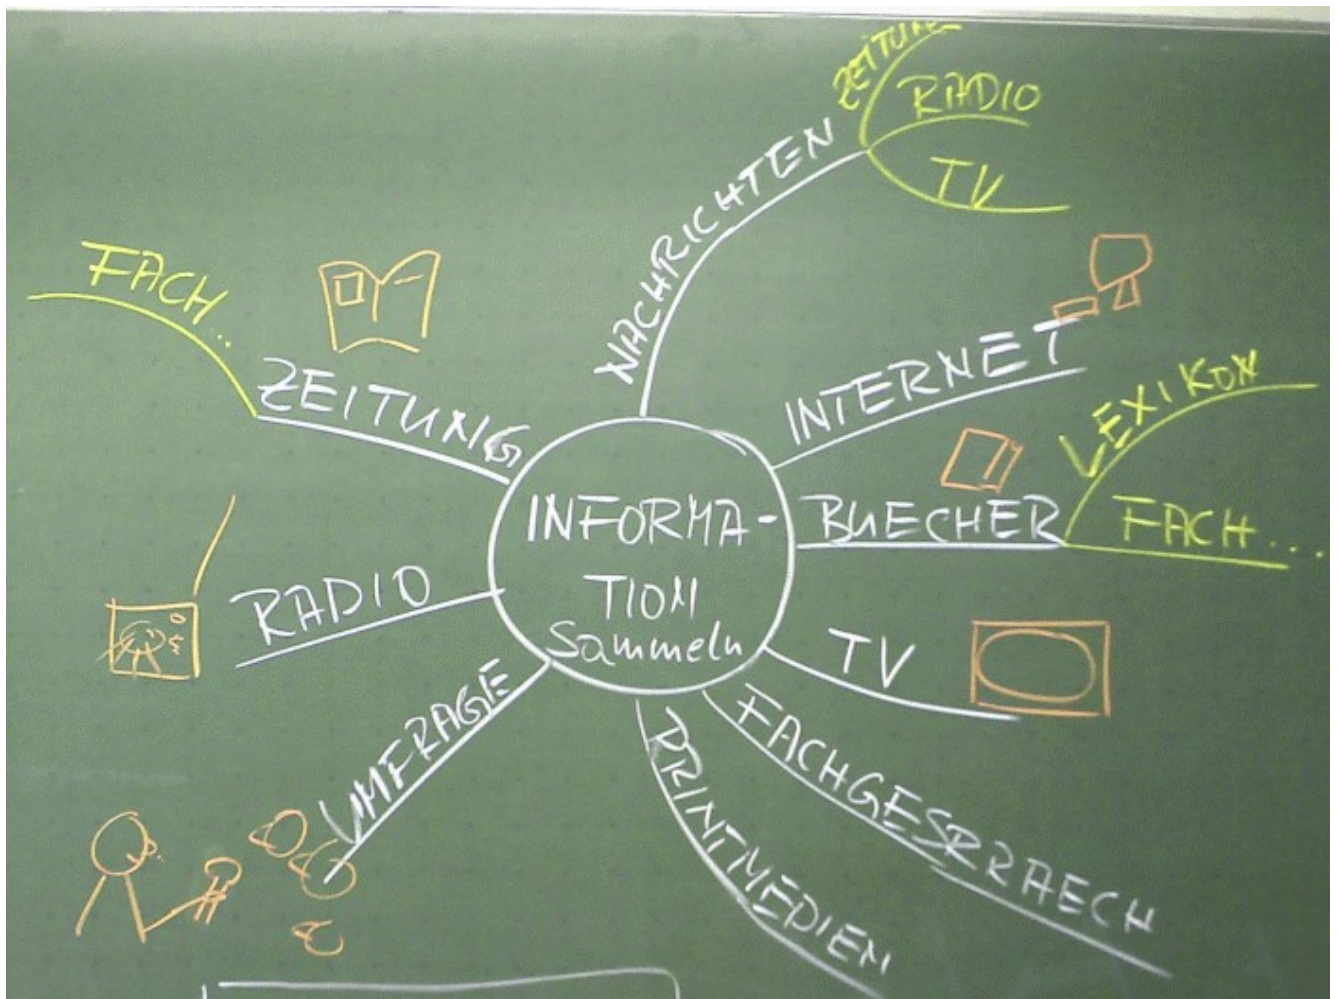 INFORMA-
TION
Sammeln
NACHRICHTEN
ZEITUNG
RADIO
TV
INTERNET
BUECHER
LEXIKON
FACH....
TV
FACHGESPRAECH
PRINTMEDIEN
UMFRAGE
RADIO
ZEITUNG
FACH...